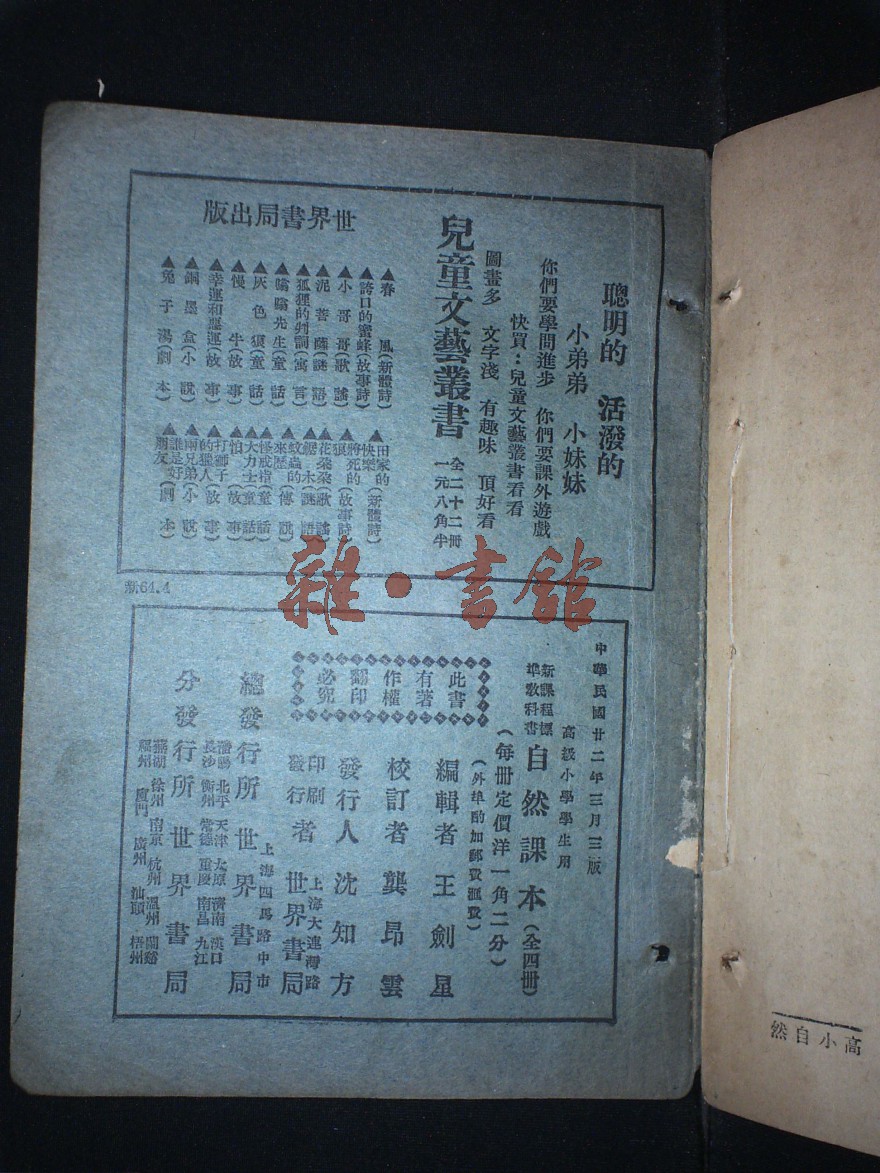 聰明的　活潑的
小弟弟　小妹妹
你們要學問進步　你們要課外遊戲
快買：兒童文藝叢書看看
圖畫多　文字淺　有趣味　頂好看
兒童文藝叢書
全二十二冊
一元八角半
世界書局出版
▲春風（新體詩）
▲誇口的蜜蜂（故事詩）
▲小哥哥（歌謠）
▲泥菩薩（謎語）
▲狐狸的判詞（寓言）
▲嗡嗡先生（童話）
▲灰色猴（童話）
▲慢牛（故事）
▲幸運和噩運（故事）
▲銅墨盒（小說）
▲兔子湯（劇本）
▲田家的快樂（新體詩）
▲將死的猴（故事詩）
▲花朶朶（歌謠）
▲鋸木（謎語）
▲蚊蟲的來歷（傳說）
▲怪戒指（童話）
▲大力士（童話）
▲怕（故事）
▲打獅子的獵人（故事）
▲兩兄弟（小說）
▲誰是好朋友（劇本）
新64.4
雜·書館
中華民國廿二年三月三版
高級小學學生用
新課程標準教科書
自然課本（全四冊）
（每冊定價洋一角二分）
（外埠酌加郵費滙費）
此書有著作權翻印必究
編輯者　王劍星
校訂者　龔昂雲
發行人　沈知方
印刷發行者　上海大連灣路　世界書局
總發行所　上海四馬路中市　世界書局
分發行所　世界書局
瀋陽　北平　天津　太原　濟南　漢口
長沙　衡州　常德　重慶　南昌　九江
蕪湖　徐州　南京　杭州　溫州　蘭谿
福州　廈門　廣州　汕頭　梧州
高小自然